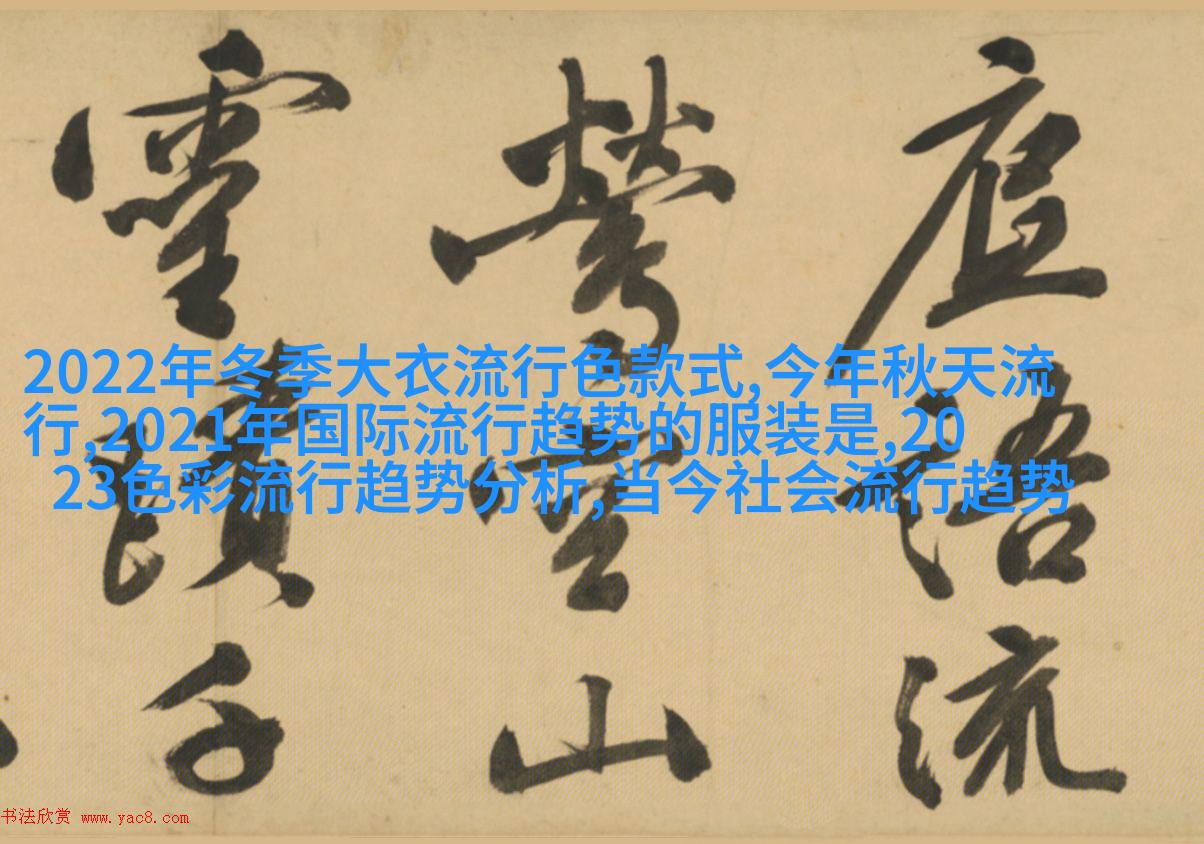 語流
鶯空山
靈蹟千
2022年冬季大衣流行色款式,今年秋天流
行,2021年国际流行趋势的服装是,20
23色彩流行趋势分析,当今社会流行趋势
书法欣赏 www.yac8.com